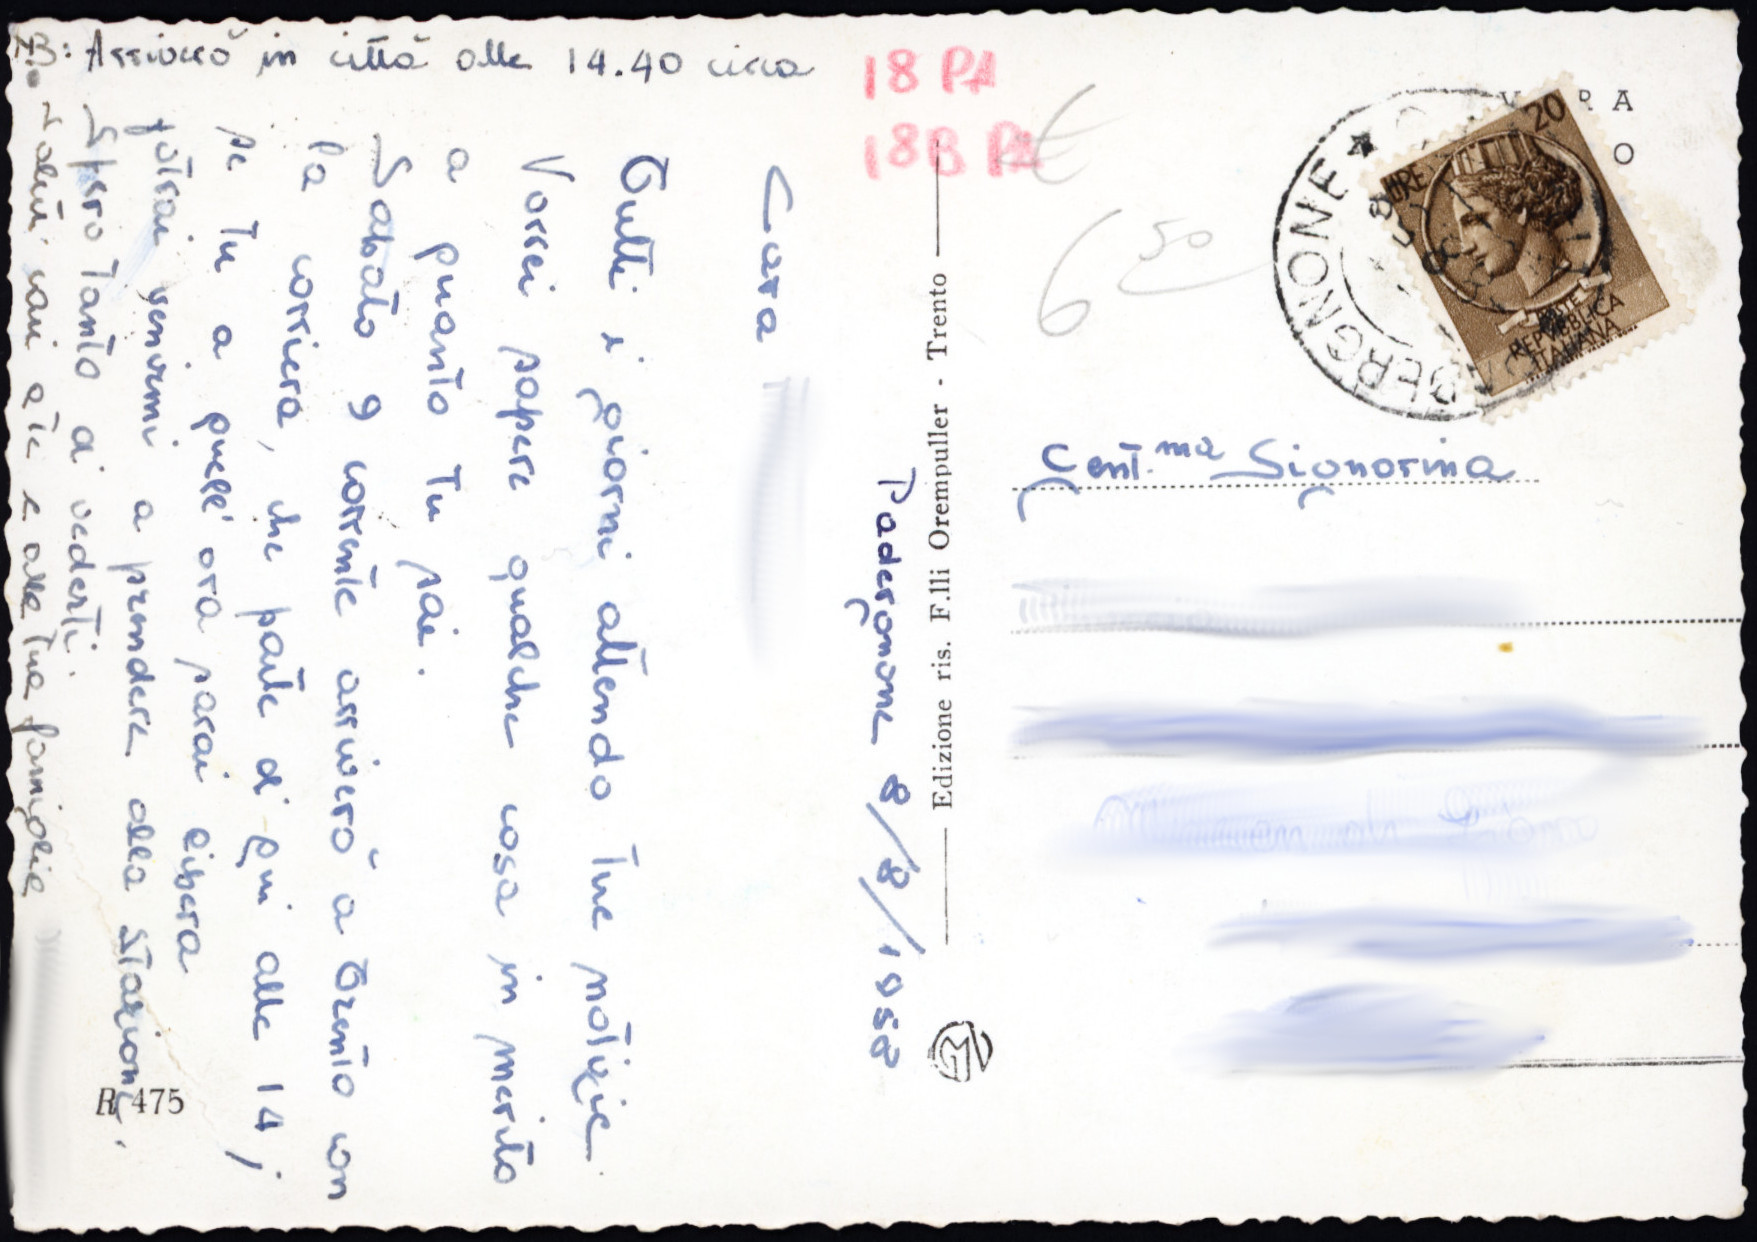 Padergnone 8/8/1958
Cara
Tutti i giorni attendo tue notizie.
Vorrei sapere qualche cosa in merito
a quanto tu sai.
Sabato 9 corrente arriverò a Trento con
la corriera, che parte di qui alle 14;
se tu a quell'ora sarai libera
potrai venirmi a prendere alla stazione.
Spero tanto di vederti.
Saluti cari a te e alla tua famiglia
NB: Arriverò in città alle 14.40 circa
R 475
Edizione ris. F.lli Orempuller - Trento
18 PA
18B PA
€
6 50
Gent.ma Signorina
PADERGNONE
LIRE 20
POSTE
REPVBBLICA
ITALIANA